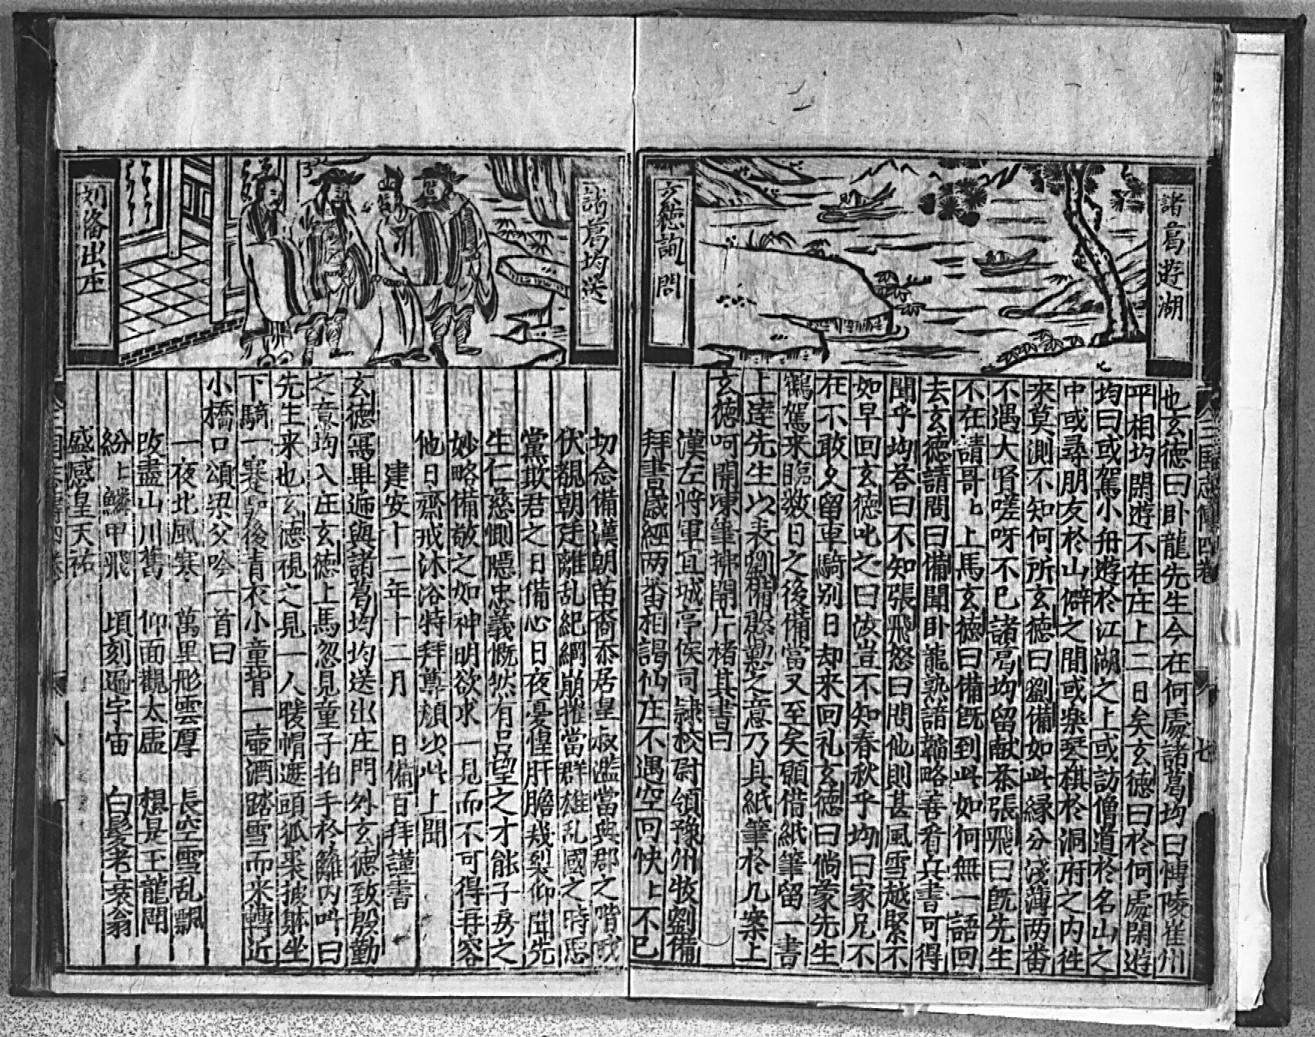 諸葛遊湖
玄德詢問
也玄德曰卧龍先生今在何處諸葛均曰慱陵崔州
平相均閑遊不在庄上二日矣玄德曰於何處閑遊
均曰或駕小舟遊於江湖之上或訪僧道於名山之
中或尋朋友於山僻之間或樂琴棋於洞府之内徃
來莫測不知何所玄德曰劉備如此緣分淺薄两畨
不遇大賢嗟呀不已諸葛均留献茶張飛曰旣先生
不在請哥〻上馬玄德曰備旣到此如何無一語回
去玄德請問曰備聞卧龍熟諳韜略善看兵書可得
聞乎均答曰不知張飛怒曰問他則甚風雪越緊不
如早回玄德叱之曰汝豈不知春秋乎均曰家兄不
在不敢久留車騎别日却来回礼玄德曰倘蒙先生
鶴駕来臨数日之後備當又至矣願借紙筆留一書
上達先生以表劉備慇懃之意乃具紙筆於几案上
玄德呵開凍筆拂開片楮其書曰
漢左将軍宜城亭侯司隷校尉領豫州牧劉備
拜書歲經两畨相謁仙庄不遇空回怏上不已
諸葛均送
刘俻出庄
切念備漢朝苗裔忝居皇叔濫當典郡之階
伏覩朝廷離乱紀綱崩摧當群雄乱國之時惡
黨欺君之日備心日夜憂惶肝膽栽裂仰聞先
生仁慈惻隱忠義慨然有吕望之才能子房之
妙略備敬之如神明欲求一見而不可得再容
他日齋戒沐浴特拜尊顔以此上聞
建安十二年十二月　日備百拜謹書
玄德寫畢遞與諸葛均均送出庄門外玄德致殷勤
之意均入庄玄德上馬忽見童子拍手於籬内叫曰
先生来也玄德視之見一人暖帽遮頭狐裘披躰坐
下騎一蹇驢後青衣小童背一壺酒踏雪而来轉近
小橋口頌梁父吟一首曰
一夜北風寒　萬里彤雲厚　長空雪乱飄
改盡山川舊　仰面觀太虛　想是玉龍鬪
紛上鱗甲飛　頃刻遍宇宙　白髮老衰翁
盛感皇天祐